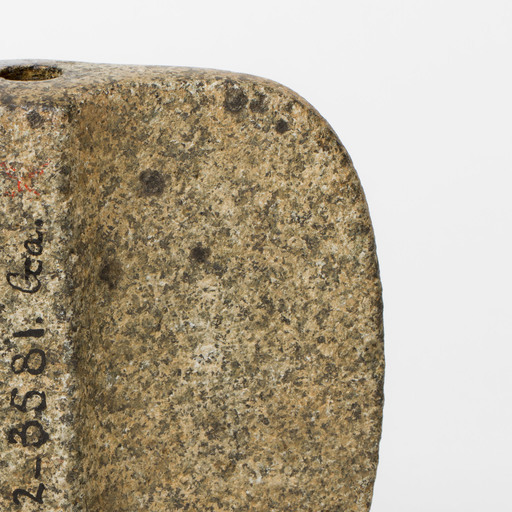 2-3581. Gca.